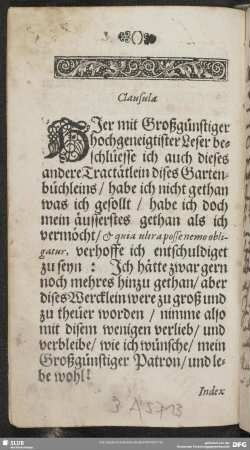 Clausula
HIer mit Großgünstiger
hochgeneigtister Leser be-
schlüesse ich auch dieses
andere Tractätlein dises Garten-
büchleins / habe ich nicht gethan
was ich gesollt / habe ich doch
mein äusserstes gethan als ich
vermöcht / & quia ultra posse nemo obli-
gatur, verhoffe ich entschuldiget
zu seyn : Ich hätte zwar gern
noch mehres hinzu gethan / aber
dises Wercklein were zu groß und
zu theüer worden / nimme also
mit disem wenigen verlieb / und
verbleibe / wie ich wünsche / mein
Großgünstiger Patron / und le-
be wohl!
Index
3 A 5713
SLUB
DFG